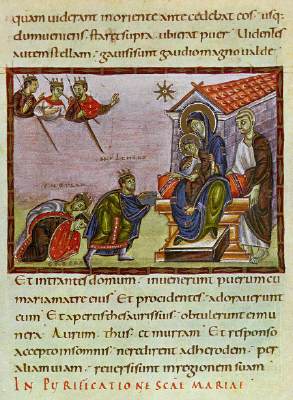 quam viderant in oriente antecedebat eos usq;
dum veniens staret supra ubi erat puer Videntes
autem stellam gavisi sunt gaudio magno valde
Et intrantes domum invenerunt puerum cu
maria matre eius Et procidentes adoraverunt
eum Et apertis thesauris suis obtulerunt ei mu
nera Aurum thus et murram Et responso
accepto in somnis ne redirent ad herodem per
aliam viam reversi sunt in regionem suam
IN PURIFICATIONE SCAE MARIAE